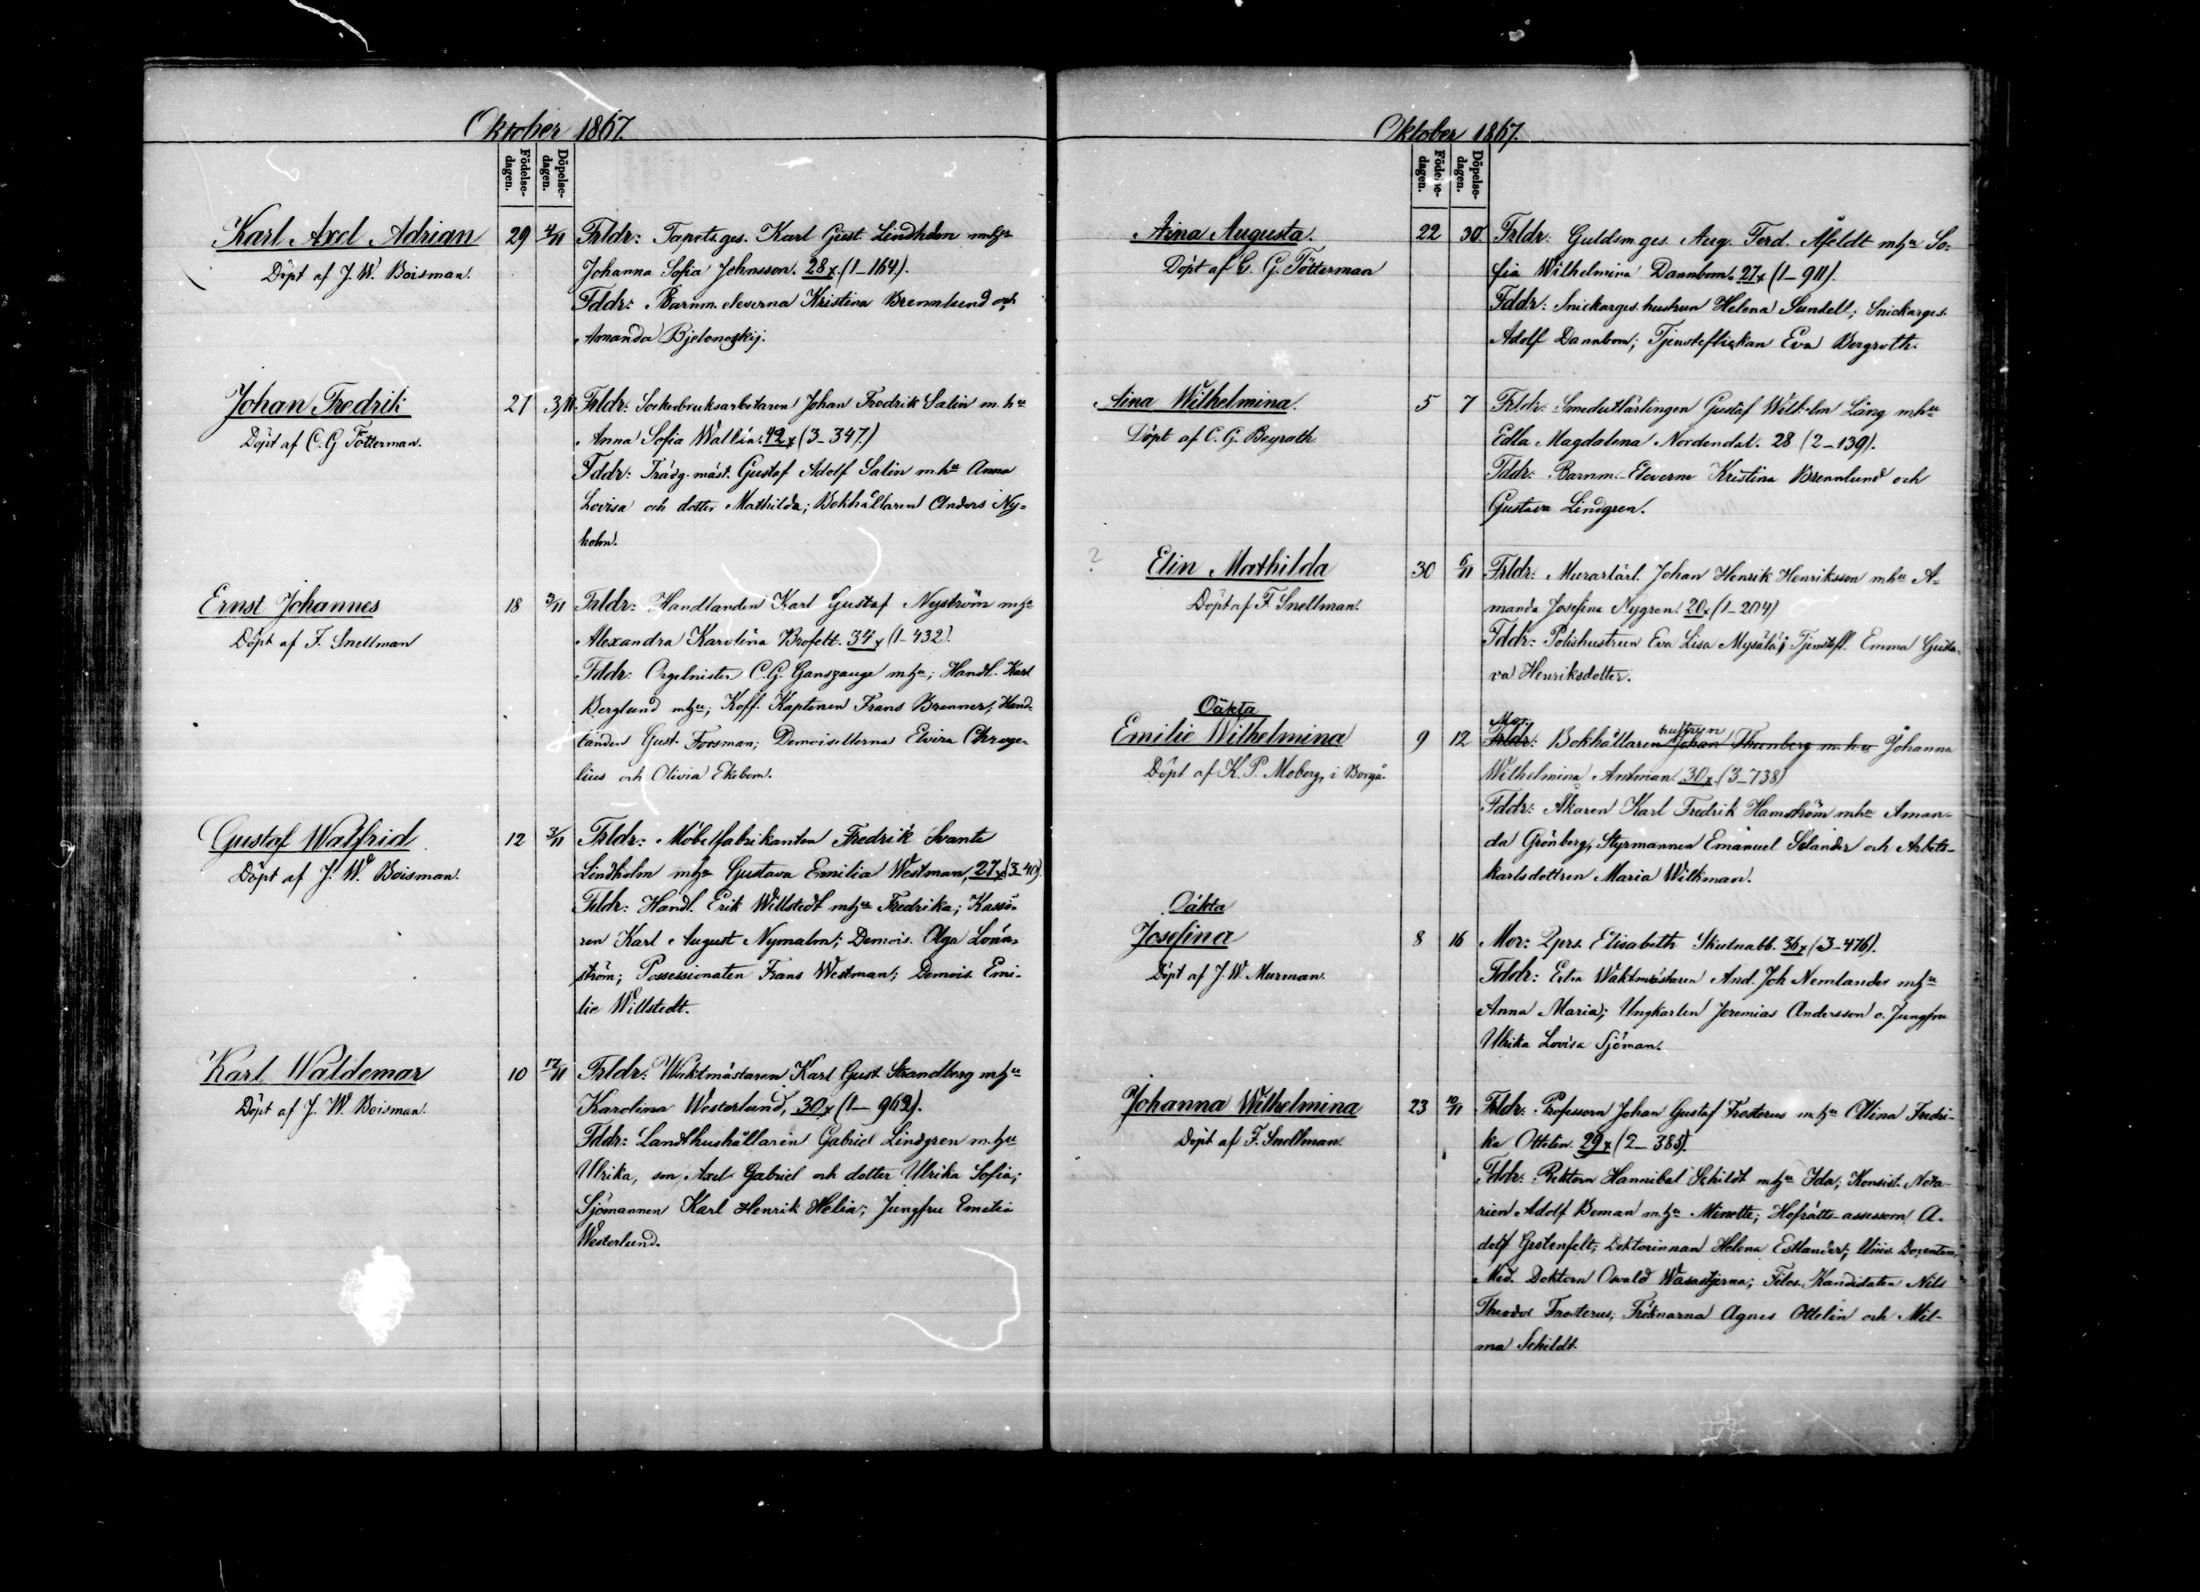 Oktober 1867.
Födelse-
dagen.
Döpelse-
dagen.
Karl Axel Adrian 29 2/11 Frldr: Tapets.ges. Karl Gust. Lindholm mhu
Döpt af J. W. Boisman. Johanna Sofia Johnsson. 28 x (1-164).
Fddr: Barnm. eleverna Kristina Brennlund och
Amanda Bjelonoskij.
Johan Fredrik 27 3/11 Frldr: Sockerbruksarbetaren Johan Fredrik Salin m. hu
Döpt af C. G. Tötterman. Anna Sofia Wallin. 42 x (3-347)
Fddr: Trädg. mäst. Gustaf Adolf Salin m hu Anna
Lovisa och dotter Mathilda; Bokhållaren Anders Ny-
holm.
Ernst Johannes 18 3/11 Frldr: Handlanden Karl Gustaf Nyström mhu
Döpt af F. Snellman Alexandra Karolina Brofelt. 34 x (1-432).
Fddr: Orgelnisten C. G. Ganszauge mhu; Handl. Karl
Berglund mhu; Koff. Kaptenen Frans Brenner; Hand-
landen Gust. Forsman; Demoisellerna Elvira Chroge-
lius och Olivia Ekebom.
Gustaf Walfrid 12 3/11 Frldr: Möbelfabrikanten Fredrik Svante
Döpt af J. W. Boisman. Lindholm mhu Gustava Emilia Westman, 27 x (3-40)
Fddr: Handl. Erik Willstedt mhu Fredrika; Kassö-
ren Karl August Nymalm; Demois. Olga Lönn-
ström; Possessionaten Frans Westman; Demois. Emi-
lie Willstedt.
Karl Waldemar 10 17/11 Frldr: Waktmästaren Karl Gust. Strandberg mhu
Döpt af J. W. Boisman. Karolina Westerlund, 30 x (1-962).
Fddr: Landthushållaren Gabriel Lindgren m.hu
Ulrika, son Axel Gabriel och dotter Ulrika Sofia;
Sjömannen Karl Henrik Helin; Jungfru Emelie
Westerlund.
Oktober 1867.
Födelse-
dagen.
Döpelse-
dagen.
Aina Augusta. 22 30. Frldr: Guldsm.ges. Aug. Ferd. Åfeldt mhu So-
Döpt af C. G. Tötterman fia Wilhelmina Dannbom. 27 x (1-911).
Fddr: Snickarges. hustrun Helena Sundell; Snickarges.
Adolf Dannbom; Tjensteflickan Eva Bergroth.
Aina Wilhelmina. 5 7 Frldr: Smedutlärlingen Gustaf Wilhelm Lång mhu
Döpt af C. G. Beyroth Edla Magdalena Nordendal. 28 (2-139).
Fddr: Barnm.-Eleverne Kristina Brennlund och
Gustava Lindgren.
? Elin Mathilda 30 6/11 Frldr: Murarlärl. Johan Henrik Henriksson mhu A-
Döpt af F. Snellman. manda Josefina Nygren. 20 x (1-204)
Fddr: Polishustrun Eva Lisa Mysälä; Tjenstefl. Emma Gusta-
va Henriksdotter.
Oäkta Mor.
Emilie Wilhelmina 9 12 Frldr: Bokhållaren hustrun Johan Thunberg m.hu Johanna
Döpt af K. P. Moberg, i Borgå. Wilhelmina Antman. 30 x (3-738)
Fddr: Åkaren Karl Fredrik Hamström mhu Aman-
da Grönberg, Styrmannen Emanuel Selander och Arbets-
karlsdottren Maria Wilkman.
Oäkta
Josefina 8 16 Mor: Pprs. Elisabeth Skutnabb. 36 x (3-476).
Döpt af J. W. Murman. Fddr: Extra Waktmästaren And. Joh Nemlander mhu
Anna Maria; Ungkarlen Jeremias Andersson o. Jungfru
Ulrika Lovisa Sjöman.
Johanna Wilhelmina 23 10/11 Frldr: Professorn Johan Gustaf Frosterus mhu Ottina Fredri-
Döpt af F. Snellman. ka Ottelin. 29 x (2-385).
Fddr: Rektorn Hannibal Schildt mhu Ida; Konsist. Nota-
rien Adolf Boman mhu Minette; Hofrätts-assessorn A-
dolf Grotenfelt; Doktorinnan Helena Estlander; Univ. Docenten
Med. Doktorn Osvald Wasastjerna; Filos. Kandidaten Nils
Theodor Frosterus, Fröknarna Agnes Ottelin och Mil-
ma Schildt.